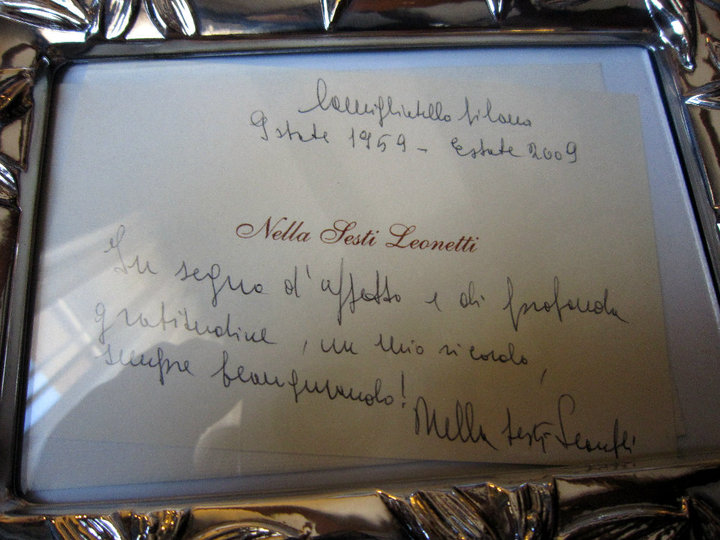 Camigliatello Silano
Estate 1959 - Estate 2009
Nella Sesti Leonetti
In segno d'affetto e di profonda
gratitudine, un mio ricordo,
sempre beneaugurando!
Nella Sesti Leonetti